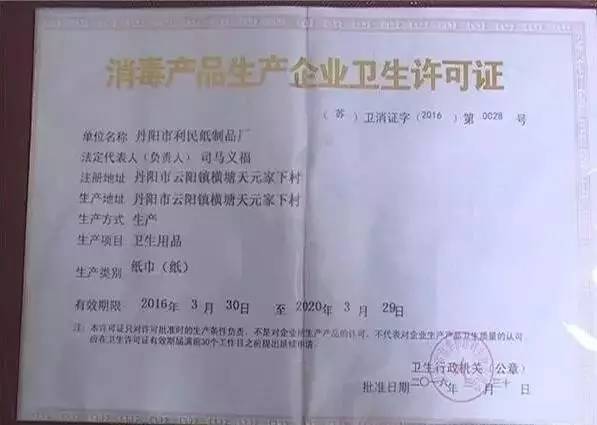 消毒产品生产企业卫生许可证
（ 苏 ）卫消证字（2016 ）第 0028 号
单位名称 丹阳市利民纸制品厂
法定代表人（负责人） 司马义福
注册地址 丹阳市云阳镇横塘天元家下村
生产地址 丹阳市云阳镇横塘天元家下村
生产方式 生产
生产项目 卫生用品
生产类别 纸巾（纸）
有效期限 2016年 3 月 30日 至 2020年 3 月 29日
注：本许可证只对许可批准时的生产条件负责，不是对企业所生产产品的许可，不代表对企业生产产品卫生质量的认可
应在卫生许可证有效期届满前30个工作日之前提出延续申请。
卫生行政机关（公章）
批准日期 二〇一六年 三月三十日